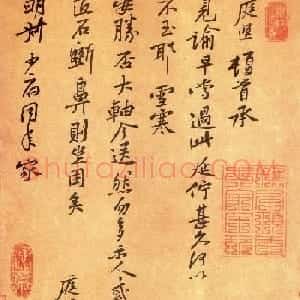 庭堅頓首承
見諭早嘗過此延佇甚久何以
不至耶雪寒
勝否大軸今送然勿多示人或
匠石斲鼻則坐困矣
庭
明叔少府同年家
shufaziliao.COM